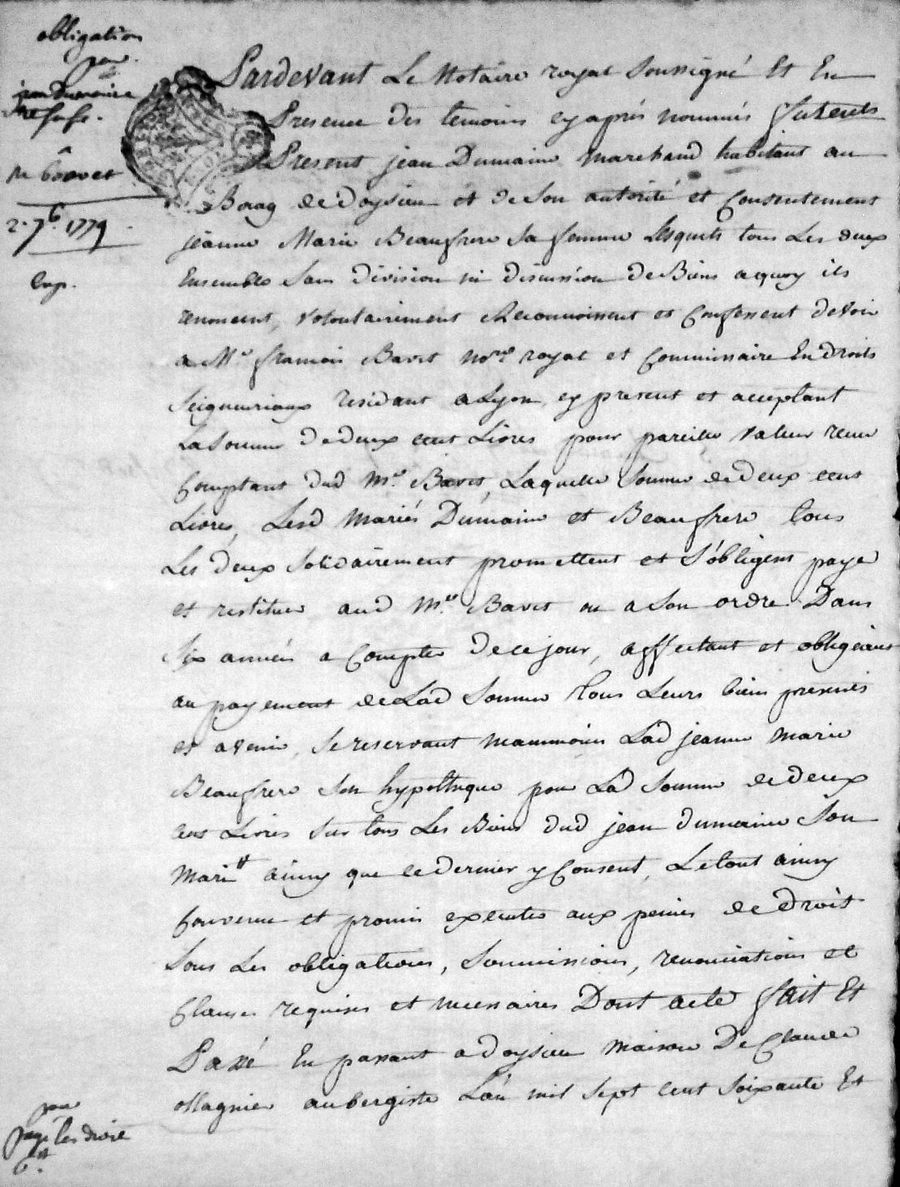 obligation
par
jean Dumaine
& sa fe.
Me Bavet
2. 7b. 1779
Exp.
Pardevant Le Notaire royal soussigné Et En
Presence des temoins cy après nommés furents
Present jean Dumaine marchand habitant au
Bourg de doysieu et de Son autorité et Consentement
jeanne Marie Beaufrere sa femme Lesquels tous Les deux
Ensemble Sans division ni discussion de Biens a quoy ils
renoncent, volontairement Reconnoissent et Confessent devoir
a Me. francois Bavet nore. royal et Commissaire En droits
Seigneuriaux residant a Lyon, cy present et acceptant
La somme de deux cent Livres pour pareille valeur reçue
Comptant dud Me. Bavet Laquelle Somme de deux cent
Livres, Lesd Mariés Dumaine et Beaufrere tous
Les deux Solidairement promettent et S'obligent paye
et restituer aud Me. Bavet ou a Son ordre Dans
Six années a Compter de ce jour, affectant et obligeant
au payement de Lad Somme tous Leurs biens presents
et avenir, se reservant neanmoins Lad jeanne marie
Beaufrere Son hypotheque pour Lad Somme de deux
cent Livres Sur tous Les Biens dud jean dumaine Son
Marit ainsy que ce dernier y Consent, Le tout ainsy
Convenu et promis executer aux peines de droit
Sous Les obligations, Soumissions, renonciations et
Clauses requises et necessaires Dont acte fait Et
Passé En passant a doysieu maison De Claude
ollagnier aubergiste L'an mil sept cent Soixante Et
payé les droits